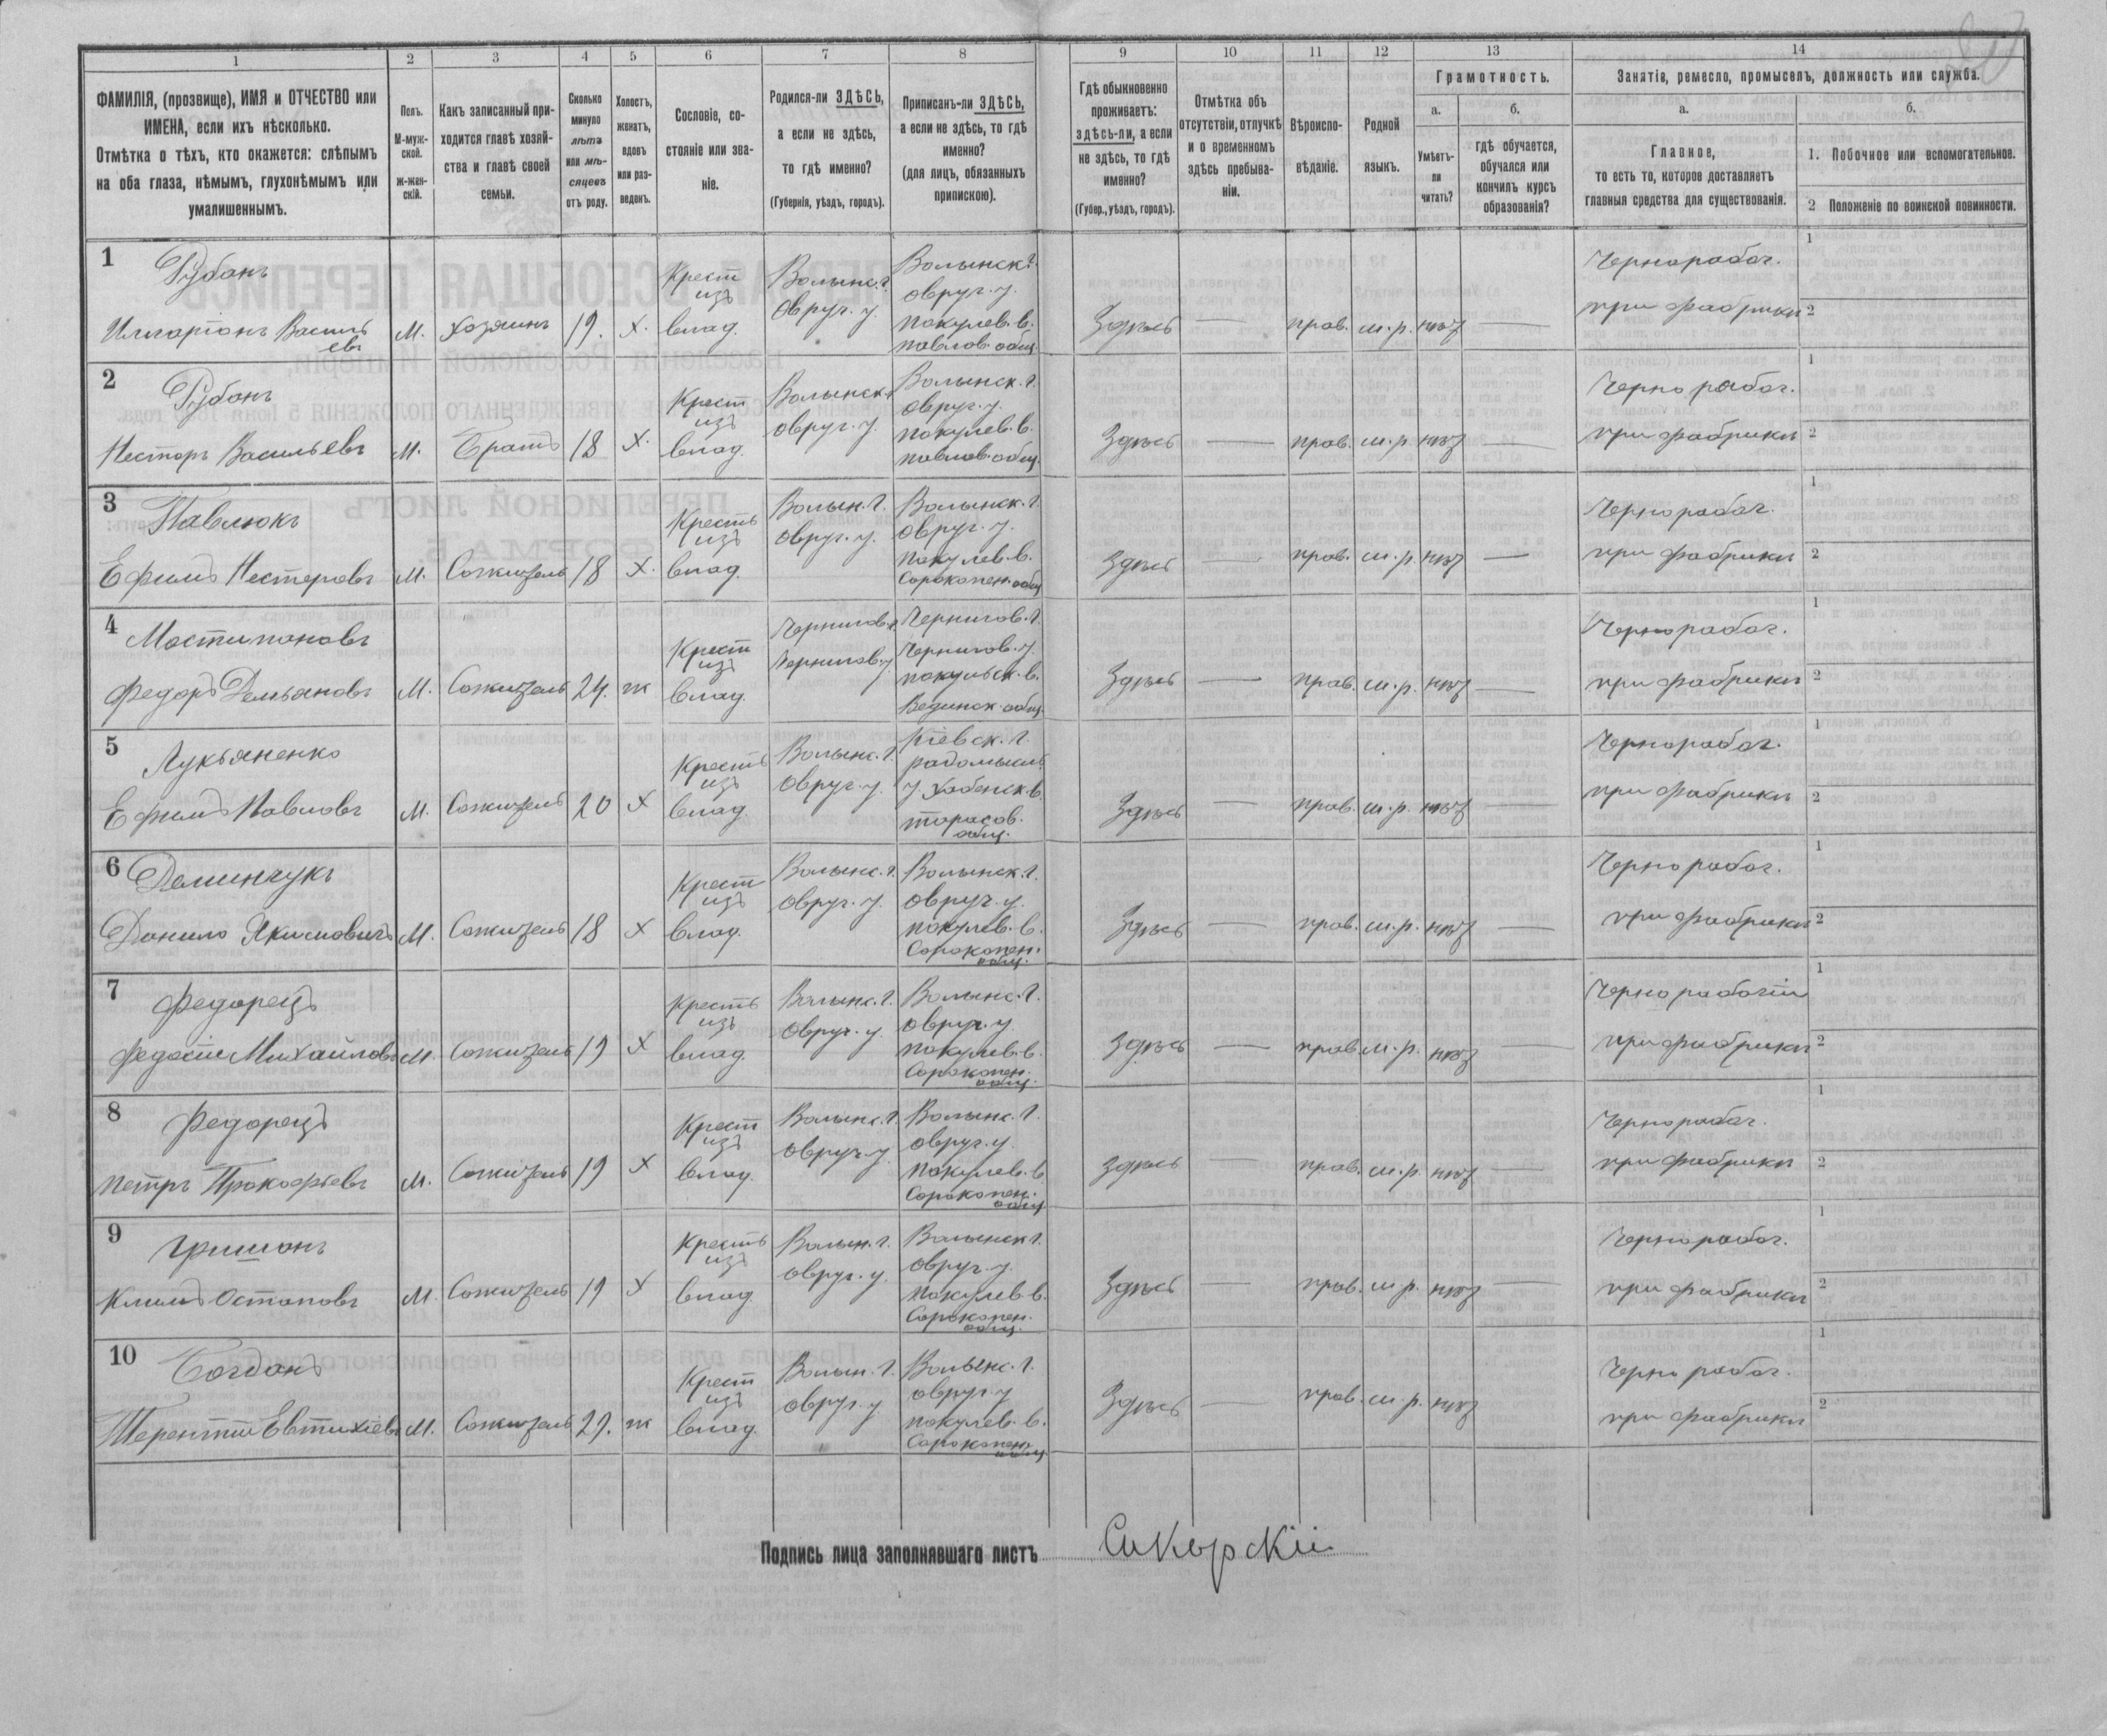 1 2 3 4 5 6 7 8 9 10 11 12 13 14
ФАМИЛІЯ, (прозвище), ИМЯ и ОТЧЕСТВО или
ИМЕНА, если ихъ нѣсколько.
Отмѣтка о тѣхъ, кто окажется: слѣпымъ
на оба глаза, нѣмымъ, глухонѣмымъ или
умалишеннымъ.
Полъ.
М-муж-
ской.
ж-жен-
скій.
Какъ записанный при-
ходится главѣ хозяй-
ства и главѣ своей
семьи.
Сколько
минуло
лѣтъ
или мѣ-
сяцевъ
отъ роду.
Холостъ,
женатъ,
вдовъ
или раз-
веденъ.
Сословіе, со-
стояніе или зва-
ніе.
Родился-ли ЗДѢСЬ,
а если не здѣсь,
то гдѣ именно?
(Губернія, уѣздъ, городъ).
Приписанъ-ли ЗДѢСЬ,
а если не здѣсь, то гдѣ
именно?
(для лицъ, обязанныхъ
припискою).
Гдѣ обыкновенно
проживаетъ:
здѣсь-ли, а если
не здѣсь, то гдѣ
именно?
(Губер., уѣздъ, городъ).
Отмѣтка объ
отсутствіи, отлучкѣ
и о временномъ
здѣсь пребыва-
ніи.
Вѣроиспо-
вѣданіе.
Родной
языкъ.
Грамотность.
а.
Умѣетъ-
ли
читать?
б.
гдѣ обучается,
обучался или
кончилъ курсъ
образованія?
Занятіе, ремесло, промыселъ, должность или служба.
а.
Главное,
то есть то, которое доставляетъ
главныя средства для существованія.
б.
1. Побочное или вспомогательное.
2 Положеніе по воинской повинности.
1 Рубанъ Крест изъ влад. Волынск. г. Овруч. у. Волынск. г. овруч. у. покулев. в. павлов. общ. Чернорабоч. 1
Илларіонъ Василь евъ М. Хозяинъ 19. х. Здѣсь — прав. м.р. нѣт — при фабрики 2
2 Рубанъ Крест изъ влад. Волынск г овруч. у. Волынск. г. овруч. у. покулев. в. павлов. общ. Черно рабоч. 1
Несторъ Васильевъ М. Братъ 18 х. Здѣсь — прав. м.р. нѣт — при фабрики 2
3 Павлюкъ Кресть изъ влад. Волын. г. овруч. у. Волынск. г. овруч. у. покулев. в. Сорокопен. общ Чернорабоч. 1
Ефимъ Нестеровъ М. Сожитель 18 х. Здѣсь — прав. м.р. нѣт — при фабрики 2
4 Крест изъ влад. Чернигов. г. Чернигов. у Чернигов. г. Чернигов. у. в. общ Чернорабоч. 1
Федоръ Демьяновъ М. Сожитель 24. ж Здѣсь — прав. м.р. нѣт — при фабрики 2
5 Лукьяненко Кресть изъ влад. Волынс. г. овруч. у. Кіевск. г. радомысль у. Хабенск. в. тарасов. общ. Чернорабоч. 1
Ефимъ Павловъ М. Сожитель 20 х Здѣсь — прав. м.р. нѣт — при фабрики 2
6 Деминчукъ Крест изъ влад. Волынс. г. овруч. у. Волынск. г. овруч. у. покулев. в. Сорокопен. общ. Чернорабоч. 1
Данило Якимовичъ М. Сожитель 18 х Здѣсь — прав. м.р. нѣт — при фабрики 2
7 Федорецъ Кресть изъ влад. Волынс. г. овруч. у Волынс. г. овруч. у покулев. в. Сорокопен. общ. Чернорабочій 1
Федосій Михайловъ М. Сожитель 19 х Здѣсь — прав м.р. нѣт — при фабрики 2
8 Федорецъ Крест изъ влад. Волынс. г. овруч. у Волынс. г. овруч. у. покулев. в Сорокопен. общ Чернорабоч. 1
Петръ Прокофьевъ М. Сожитель 19 х Здѣсь — прав. м.р. нѣт — при фабрики 2
9 Гришанъ Кресть изъ влад Волын. г. овруч. у. Волынск г. овруч. у. покулев. в. Сорокопен. общ. Чернорабоч. 1
Климъ Остаповъ М. Сожитель 19 х Здѣсь — прав. м.р. нѣт — при фабрики 2
10 Богданъ Крест изъ влад. Волын. г. овруч. у Волынс. г. овруч. у покулев. в. Сорокопен. общ Черно рабоч. 1
Терентій Евтихіевъ М. Сожитель 29. ж Здѣсь — прав. м.р. нѣт при фабрики 2
Подпись лица заполнявшаго листъ Сикорскій